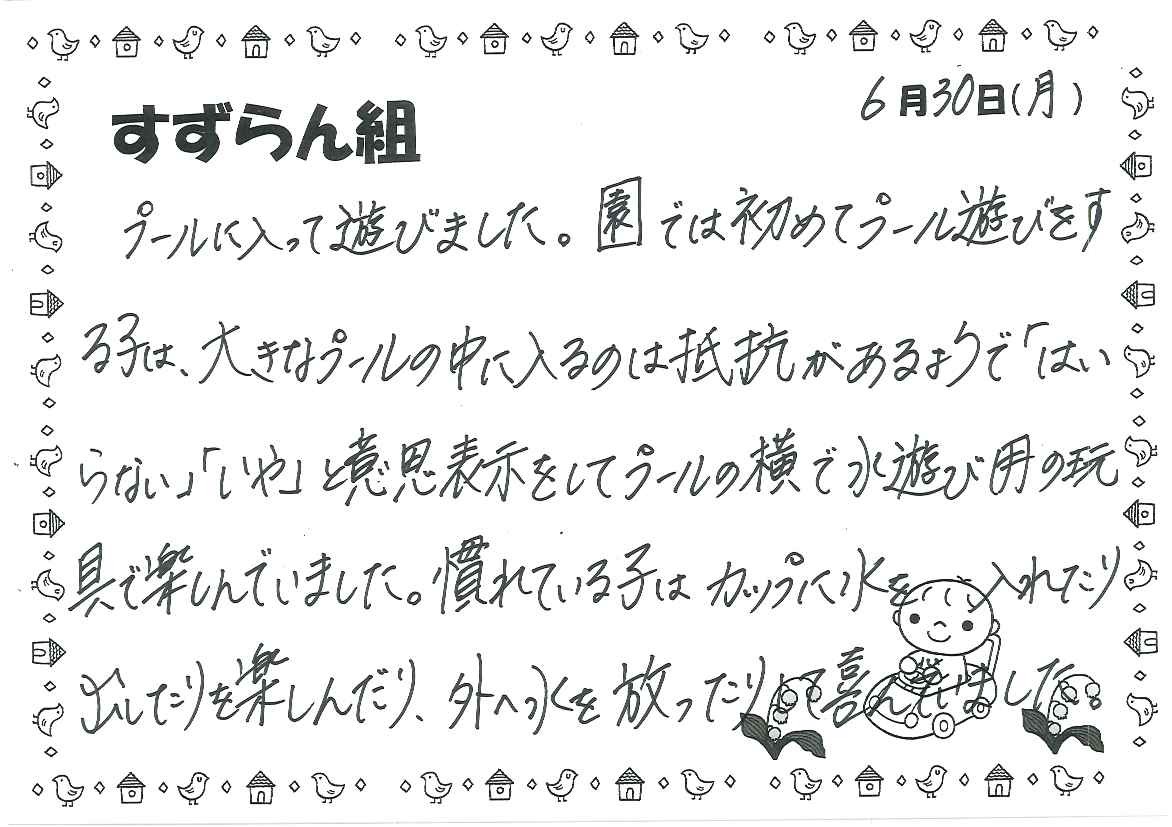 6月30日(月)
すずらん組
プールに入って遊びました。園では初めてプール遊びをす
る子は、大きなプールの中に入るのは抵抗があるようで「はい
らない」「いや」と意思表示をしてプールの横で水遊び用の玩
具で楽しんでいました。慣れている子はカップに水を入れたり
出したりを楽しんだり、外へ水を放ったりして喜んでいました。